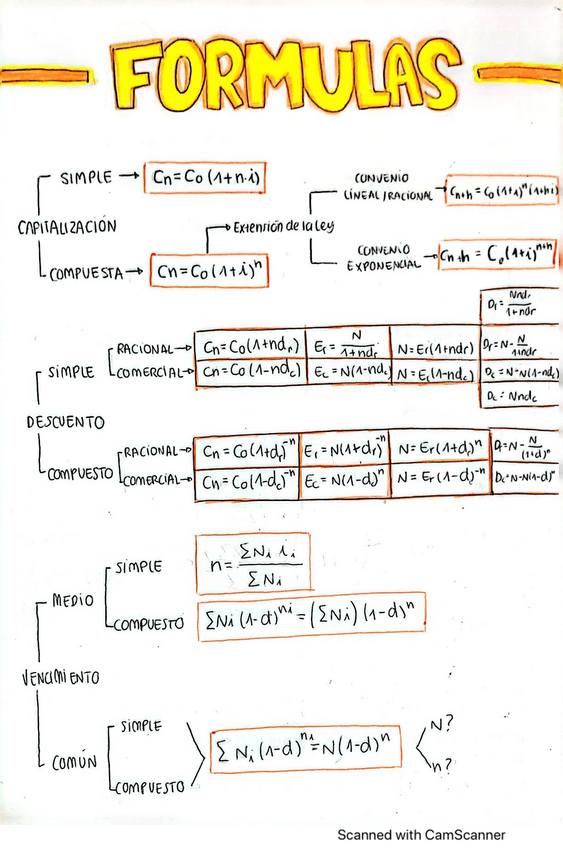 FORMULAS
SIMPLE → Cn = Co (1+n·i)
CAPITALIZACIÓN
COMPUESTA → Cn = Co (1+i)^n
Extensión de la Ley
CONVENIO LINEAL/RACIONAL → Cn+h = Co (1+i)^n (1+hi)
CONVENIO EXPONENCIAL → Cn+h = Co (1+i)^n+h
DESCUENTO
SIMPLE
Dr = Nndr / 1+ndr
RACIONAL → Cn = Co (1+ndr) Er = N / 1+ndr N = Er (1+ndr) Dr = N - N / 1+ndr
COMERCIAL → Cn = Co (1-ndc) Ec = N (1-ndc) N = Er (1-ndc) Dc = N-N(1-ndc)
Dc = Nndc
COMPUESTO
RACIONAL → Cn = Co (1+dr)^-n Er = N(1+dr)^-n N = Er (1+dr)^n Dr = N - N / (1+d)^n
COMERCIAL → Cn = Co (1-dc)^-n Ec = N(1-d)^n N = Er (1-d)^-n Dc = N-N(1-d)^n
VENCIMIENTO
MEDIO
SIMPLE n = ΣNi ii / ΣNi
COMPUESTO ΣNi (1-d)^ni = (ΣNi) (1-d)^n
COMÚN
SIMPLE
COMPUESTO
Σ Ni (1-d)^ni = N(1-d)^n
N?
n?
Scanned with CamScanner